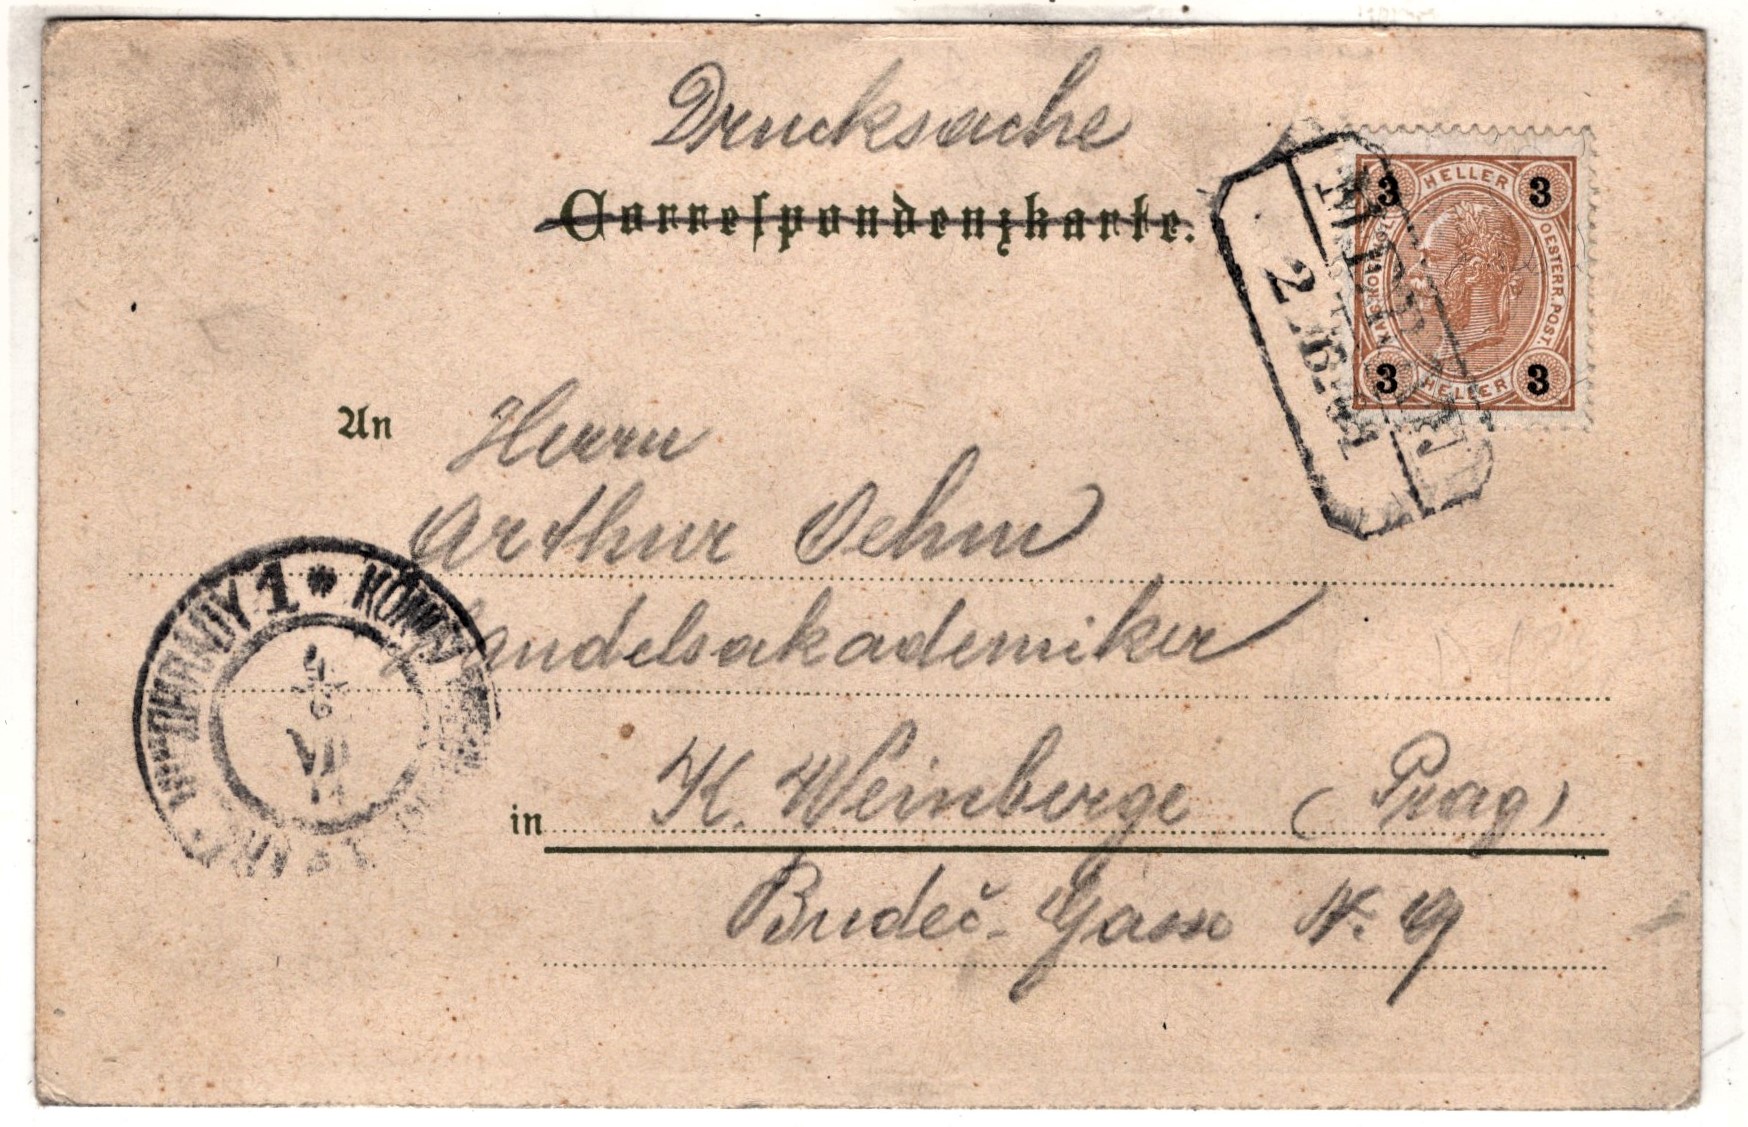 Drucksache
Correspondenzkarte.
3 HELLER 3
KAIS. KÖNIGL. OESTERR. POST.
3 HELLER 3
2
An Herrn
Arthur Oehm
Handelsakademiker
in K. Weinberge (Prag)
Budeč-Gasse N. 19
1 * KÖNIGL
VII